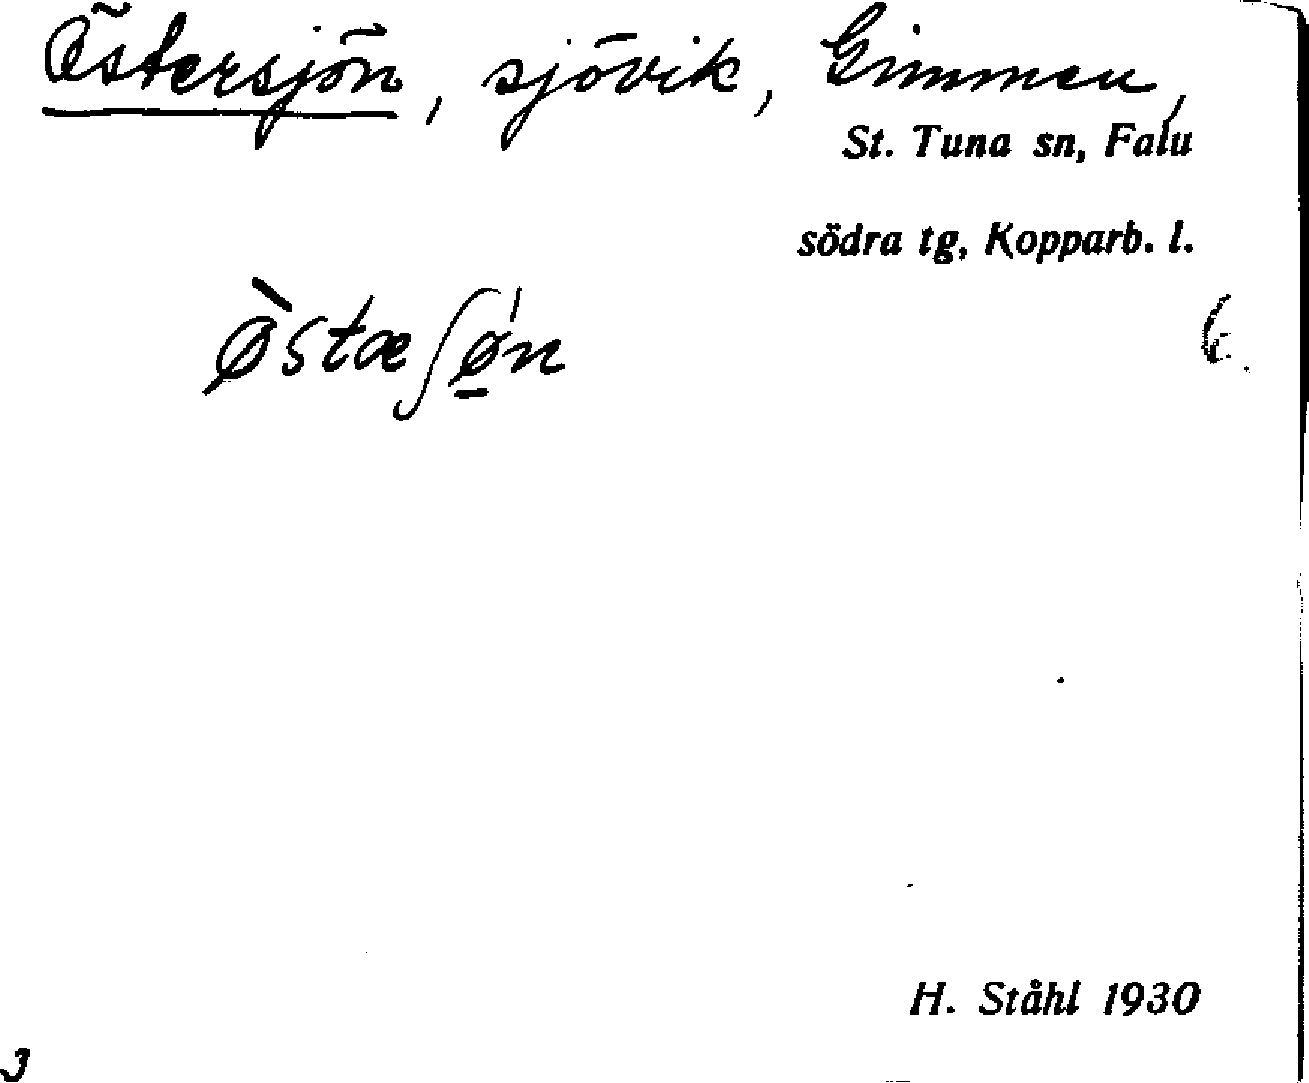 Östersjön, sjövik, Gimmen,
St. Tuna sn, Falu
södra tg, Kopparb. l.
ø̀stæʃǿ̱n
H. Ståhl 1930
3